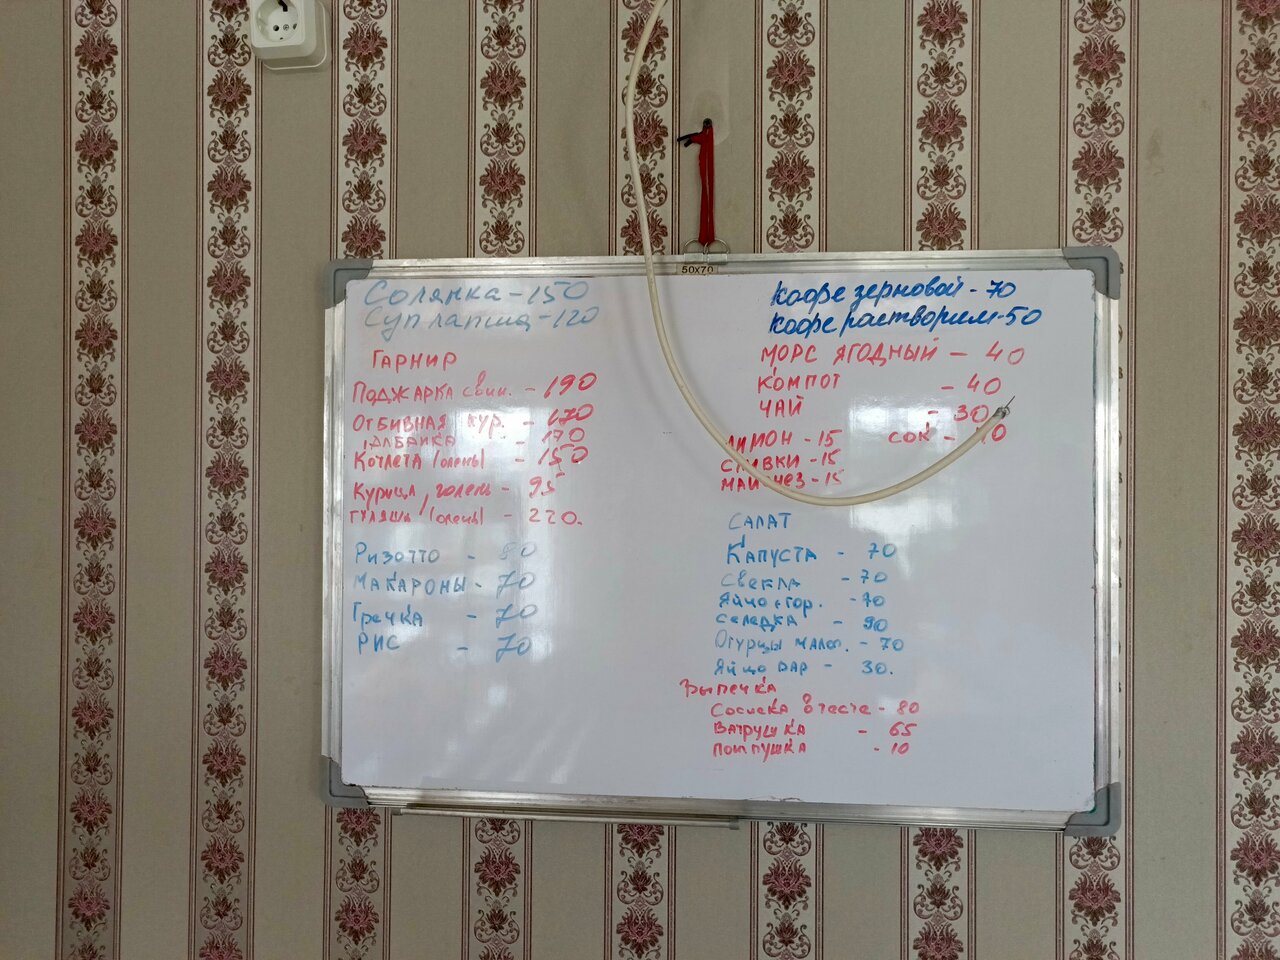 50x70
Солянка - 150
Суп лапша - 120
Гарнир
Поджарка свин. - 190
Отбивная кур. - 170
- 170
Котлета (олень) - 150
Курица, голень - 95
гуляшь (олень) - 220.
Ризотто - 80
Макароны - 70
Гречка - 70
Рис - 70
Кофе зерновой - 70
Кофе растворим - 50
Морс ягодный - 40
Компот - 40
Чай - 30
Лимон - 15 сок -
сливки - 15
май-нез - 15
Салат
Капуста - 70
Свекла - 70
Яйцо + гор. - 70
селедка - 90
Огурцы малос. - 70
Яйцо вар - 30.
Выпечка
Сосиска в тесте - 80
Ватрушка - 65
Помпушка - 10